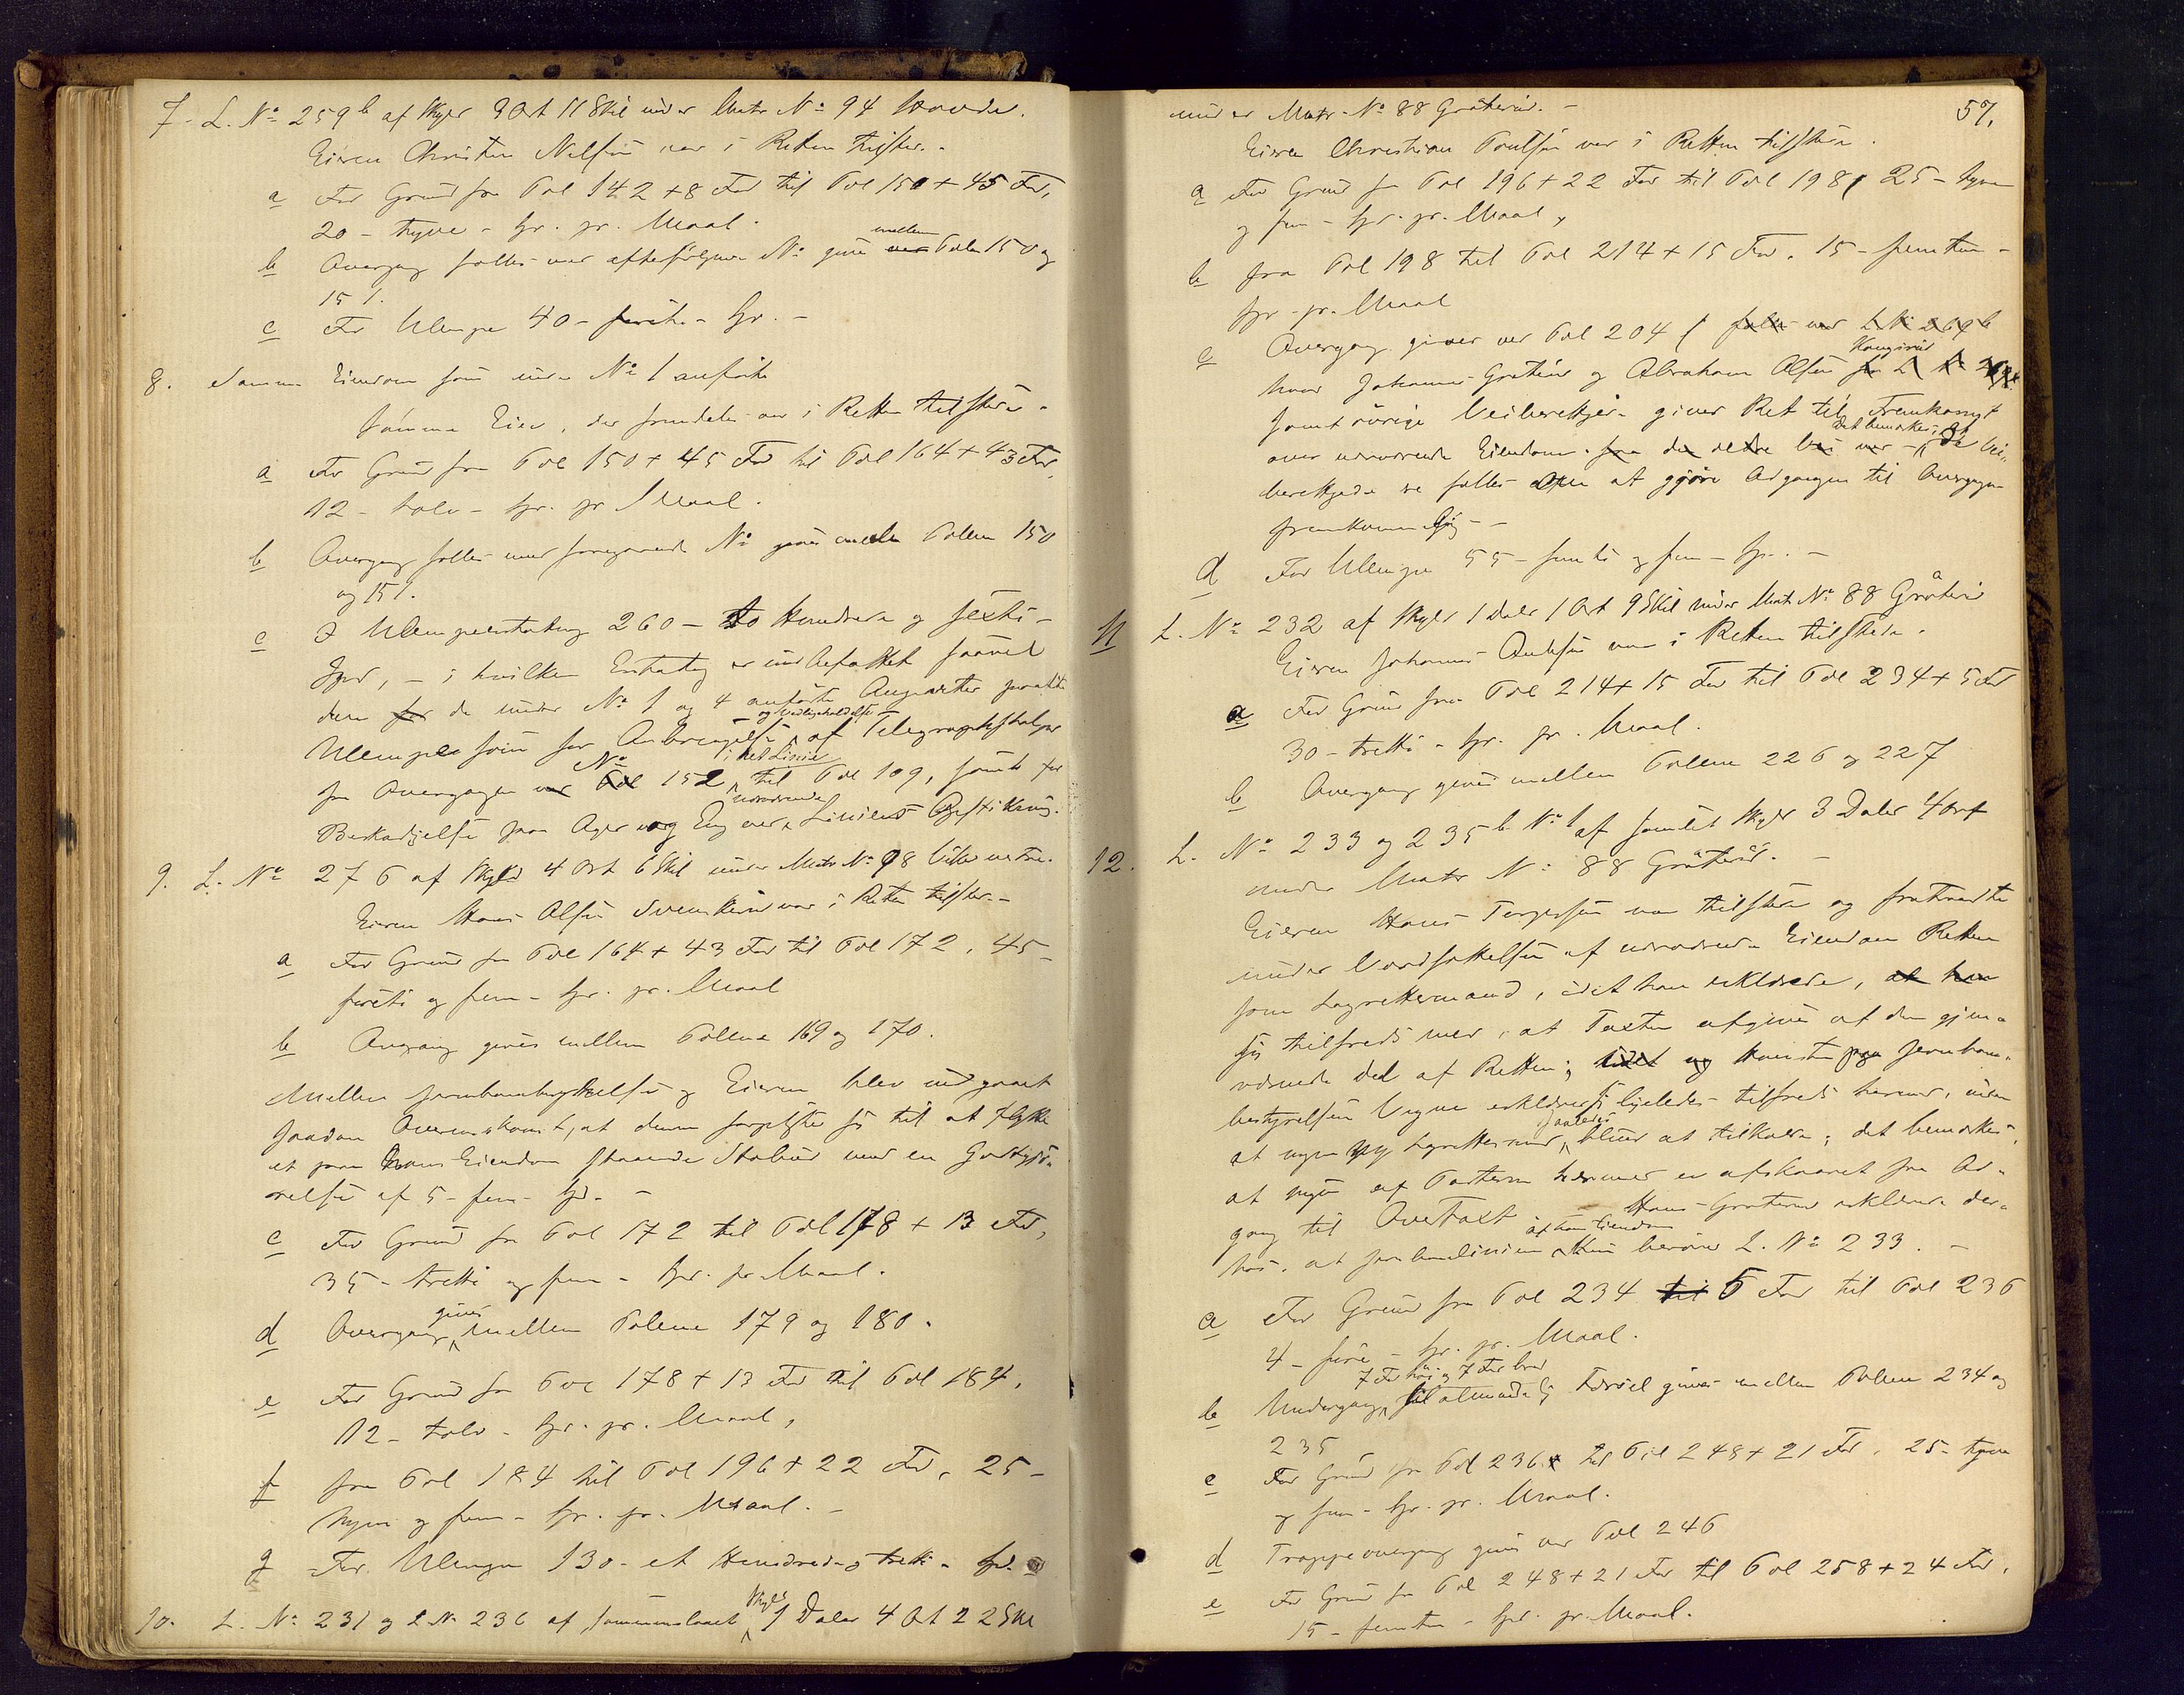 7. L. No 259b af Skyld 3 Ort 11 Skil under Matr No 94
Eieren Christen Nilsen var i Retten tilstede.
a For Grund fra Pæl 142 + 8 Fod til Pæl 150 + 45 Fod,
20 - tyve - Spd. pr. Maal.
b Overgang fælles med efterfølgende No gives ved mellem Pælene 150 og
151.
c For Ulempe 40 - firti - Spd. -
8. Samme Eiendom som under No 1 anført
Samme Eier, der fremdeles var i Retten tilstede.
a For Grund fra Pæl 150 + 45 Fod til Pæl 164 + 43 Fod,
12 - tolv - Spd. pr Maal.
b Overgang fælles med foregaaende No gives mellem Pælene 150
og 151.
c I Ulempeerstatning 260 - to Hundrede og sexti -
Spd, - i hvilken Erstatning er indbefattet saavel
den for de under No 1 og 4 anførte
Ulemper som for Anbringelse og Vedligeholdelse af Telegraphstolper
fra Overgangen ved Pæl No 152 i ret Linie til Pæl 109, samt for
Beskadigelse paa Ager og Eng ved nærværende Liniens Opstikning.
9. L. No 276 af Skyld 4 Ort 6 Skil under Matr No 98
Eieren Hans Olsen Svenskerud var i Retten tilstede. -
a For Grund fra Pæl 164 + 43 Fod til Pæl 172, 45 -
firti og fem - Spd. pr. Maal
b Overgang gives mellem Pælene 169 og 170.
Mellem Jernbanebestyrelsen og Eieren blev indgaaet
saadan Overenskomst, at denne forpligter sig til at flytte
et paa hans Eiendom staaende Stabur mod en Godtgjø-
relse af 5 - fem - Spd. -
c For Grund fra Pæl 172 til Pæl 178 + 13 Fod,
35 - tretti og fem - Spd. pr Maal.
d Overgang gives mellem Pælene 179 og 180.
e For Grund fra Pæl 178 + 13 Fod til Pæl 184,
12 - tolv - Spd. pr. Maal,
f fra Pæl 184 til Pæl 196 + 22 Fod, 25 -
tyve og fem - Spd. pr. Maal. -
g For Ulempe 130 - et Hundrede og tretti - Spd.
10. L. No 231 og L No 236 af sammenlaget Skyld 1 Daler 4 Ort 22 Skil
57.
under Matr No 88 Gråterud. -
Eieren Christian Poulsen var i Retten tilstede.
a For Grund fra Pæl 196 + 22 Fod til Pæl 198, 25 - tyve
og fem - Spd. pr. Maal,
b fra Pæl 198 til Pæl 214 + 15 Fod, 15 - femten -
Spd. pr. Maal
c Overgang gives ved Pæl 204 fælles med L No 269b
hvor Johannes Gråterud og Abraham Olsen Kongsrud
samt øvrige Veiberettigede gives Ret til Fremkomst
over nærværende Eiendom fra den ældre Vei ved - det bemærkes, at de Vei-
berettigede ere fælles om at gjøre Adgangen til Overgangen
fremkommelig. -
d For Ulempe 55 - femti og fem - Spd. -
11 L. No 232 af Skyld 1 Daler 1 Ort 9 Skil under Matr No 88 Gråterud
Eieren Johannes var i Retten tilstede.
a For Grund fra Pæl 214 + 15 Fod til Pæl 234 + 5 Fod
30 - tretti - Spd. pr. Maal.
b Overgang gives mellem Pælene 226 og 227
12. L. No 233 og 235b No 1 af samlet Skyld 3 Daler 4 Ort
under Matr No 88 Gråterud. -
Eieren Hans Torgersen var tilstede og fratraadte
under Værdsættelsen af nærværende Eiendom Retten
som Lagrettemand, idet han erklærede, at han
sig tilfreds med, at Taxten afgives af den gjen-
værende Del af Retten; idet og paa Jernbane-
bestyrelsens Vegne erklærede sig ligeledes tilfreds hermed, uden
at nogen ny Lagrettemand saaledes bliver at tilkalde; det bemærkes,
at ingen af Parterne hermed er afskaaret fra Ad-
gang til Overtaxt. - Hans Gråterud erklærede der-
hos, at Jernbanelinien af hans Eiendom kun berører L. No 233. -
a For Grund fra Pæl 234 til 5 Fod til Pæl 236
4 - fire - Spd. pr. Maal.
b Undergang 7 Fod høi og 7 Fod bred til almindelig Færdsel gives mellem Pælene 234 og
235
c For Grund fra Pæl 236 til Pæl 248 + 21 Fod, 25 - tyve
og fem - Spd. pr. Maal.
d Trappeovergang gives ved Pæl 246
e For Grund fra Pæl 248 + 21 Fod til Pæl 258 + 24 Fod,
15 - femten - Spd. pr. Maal.